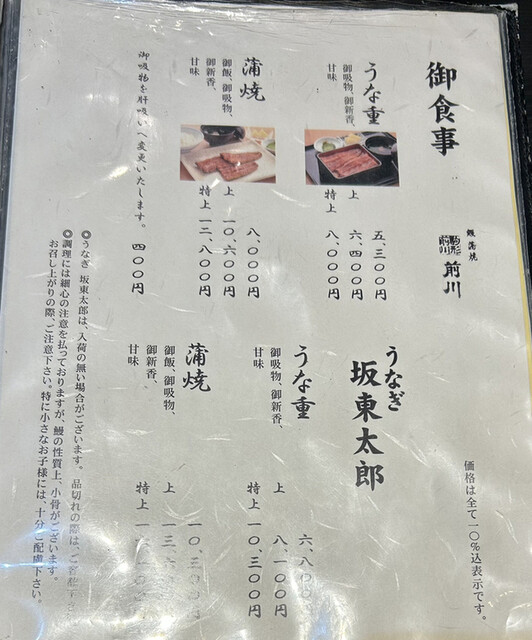 御食事
鰻蒲焼
駒形前川 前川
うな重
御吸物、御新香、
甘味
五、三〇〇円
上 六、四〇〇円
特上 八、〇〇〇円
蒲焼
御飯、御吸物、
御新香、
甘味
八、〇〇〇円
上 一〇、六〇〇円
特上 一二、八〇〇円
御吸物を肝吸いへ変更いたします。 四〇〇円
価格は全て一〇%込表示です。
うなぎ 坂東太郎
うな重
御吸物、御新香、
甘味
六、八〇〇
上 八、一〇〇円
特上 一〇、三〇〇円
蒲焼
御飯、御吸物、
御新香、
甘味
一〇、三〇〇円
上 一三、
特上
◎うなぎ 坂東太郎は、入荷の無い場合がございます。品切れの際は、ご容赦下さい。
◎調理には細心の注意を払っておりますが、鰻の性質上、小骨がございます。
お召し上がりの際、ご注意下さい。特に小さなお子様には、十分ご配慮下さい。